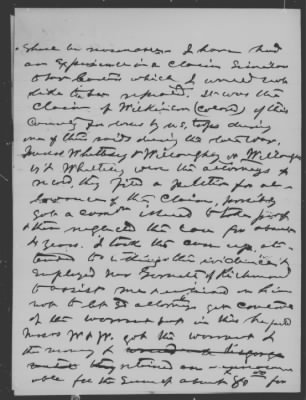 shall be necessary. I have had
an experience in a claim similar
to Mr. Coates which I would not
like to have repeated. It was the
Claim of Wilkinson (colored) of this
County for loss by U.S. troops during
one of the raids during the late war.
Messrs Whittlesey & Willoughby or Willough
by & Whittlesey were the attorneys of
record, they filed a petition for al-
lowance of the Claim, possibly
got a comr. issued to take proof
& then neglected the case for about
4 years. I took the case up, at-
tended to getting the evidence &
employed Mr. of Richmond
to assist me & enjoined on him
not to let attorneys get control
of the warrant but in this he failed
Messrs W & W. got the warrant &
the money &
they retained an
able fee the sum of about $80 for